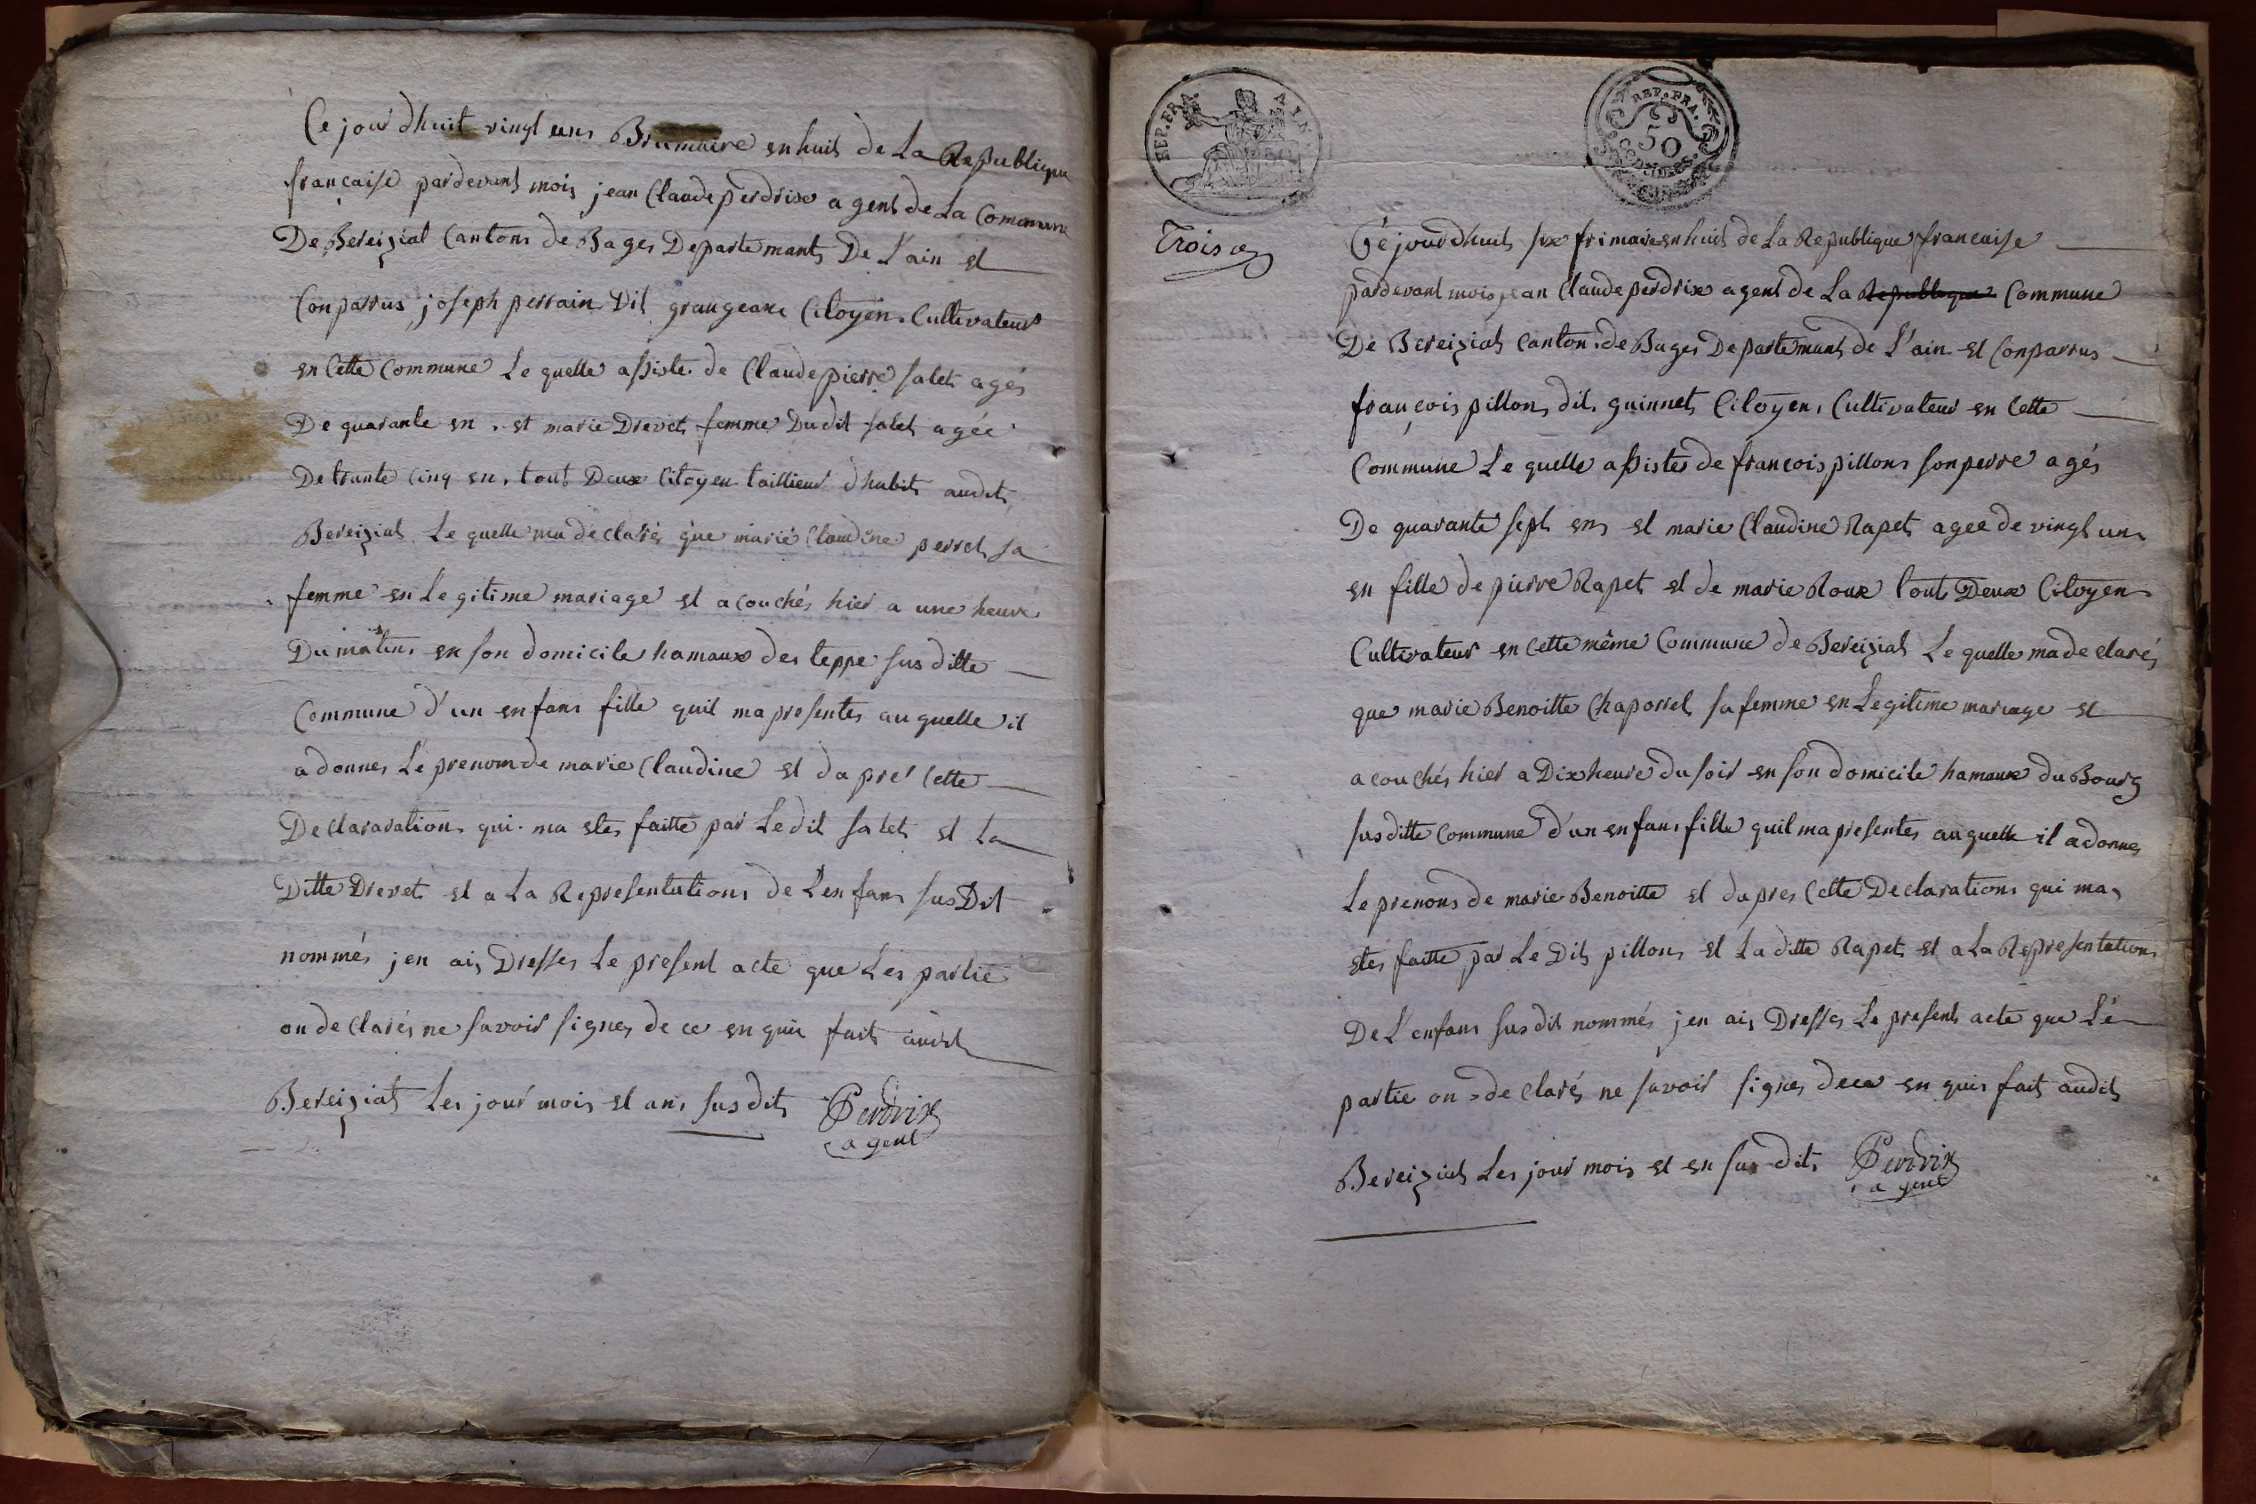 Ce jour dhuit vingt uns Brumaire en huit de La Republique
française pardevant mois jean Claude perdrix agent de La Commune
De Bereiziat Cantons de Bages Departemants De L'ain et
Conparrus joseph perrain Dit grangeane Citoyen Cultivateur
en Cette Commune Le quelle assiste de Claude pierre salet agés
De quarante en . et marie Drevet femme Dudit salet agée
De trante cinq en, tout Deux Citoyen taillieur dhabit audit
Bereiziat Le quelle ma declarés que marie Claudine perret sa
femme en Legitime mariage et acouchés hier a une heure
Du matins en son domicile hamaux des teppe sus ditte
Commune d'un enfans fille quil ma presentes auquelle il
a donnes Le prenom de marie Claudine et dapre' Cette
Declararations qui ma etes faitte par Ledit salet et La
Ditte Drevet et a La Representations de L'enfans susDit
nommés jen ais Dresses Le present acte que Les partie
on declarés ne savoir signes de ce enquis fait audit
Bereiziat Les jour mois et ans susdits Perdrix
agent
REP. FRA. AIN.
REP. FRA.
50
CENTIMES.
Trois
Céjourdhuit six frimaire en huit de La Republique francaise
pardevant mois jean Claude perdrix agent de La Republique Commune
De Bereiziat Canton de Bages Departemant de L'ain et Conparrus
françois pillons dit guinnet Citoyen Cultivateur en Cette
Commune Le quelle assistes de francois pillons son perre agés
De quarante sept en et marie Claudine Rapet agee de vingt uns
en fille de pierre Rapet et de marie Roux tout Deux Citoyen
Cultivateur en Cette même Commune de Bereiziat Le quelle ma declarés
que marie Benoitte Chaporret sa femme en Legitime mariage et
acouchés hier a Dix heure du soir en son domicile hamaux du Bourg
susditte Commune d'un enfans fille quil ma presentes auquelle il a donnes
Le prenons de marie Benoitte et dapres Cette Declarations qui ma
etes faitte par Le Dit pillons et La ditte Rapet et a La Representations
De L'enfans susdit nommés jen ais Dresses Le present acte que Lé
partie on declarés ne savoir signes dece enquis fait audit
Bereiziat Les jour mois et en susdits Perdrix
agent